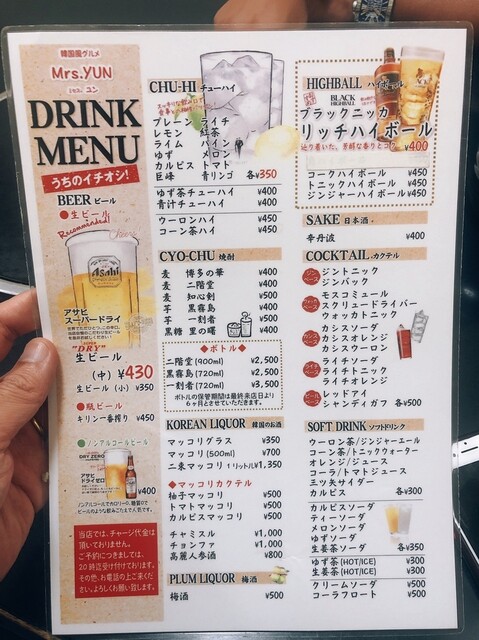 韓国風グルメ
Mrs.YUN
ミセス ユン
DRINK
MENU
うちのイチオシ!
BEER ビール
●生ビール
Recommended!
Cheers
Asahi
アサヒ
スーパードライ
SUPER
"DRY"
生ビール
(中) ¥430
生ビール (小) ¥350
●瓶ビール
キリン一番搾り ¥450
●ノンアルコールビール
DRY ZERO
アサヒ
ドライゼロ
¥400
ノンアルコールでカロリー0、糖質0で
ビールのような飲みごたえで人気です。
当店では、チャージ代金は
頂いておりません。
ご予約につきましては、
20時迄受け付けております。
その他、お電話の上ご来く
ださい。よろしくお願い致します。
CHU-HI チューハイ
プレーン ライチ
レモン 紅茶
ライム パイン
ゆず メロン
カルピス トマト
巨峰 青リンゴ 各¥350
ゆず茶チューハイ ¥400
青汁チューハイ ¥400
ウーロンハイ ¥450
コーン茶ハイ ¥450
CYO-CHU 焼酎
麦 博多の華 ¥400
麦 二階堂 ¥400
麦 知心剣 ¥500
芋 黒霧島 ¥400
芋 一刻者 ¥500
黒糖 里の曙 ¥400
◆ボトル◆
二階堂 (900ml) ¥2,500
黒霧島 (720ml) ¥2,500
一刻者 (720ml) ¥3,500
ボトルの保管期間は最終来店日より
6ヶ月とさせていただきます。
KOREAN LIQUOR 韓国のお酒
マッコリグラス ¥350
マッコリ (500ml) ¥700
二東マッコリ 1リットル ¥1,350
◆マッコリカクテル
柚子マッコリ ¥500
トマトマッコリ ¥500
カルピスマッコリ ¥500
チャミスル ¥1,000
チョンファ ¥1,000
高麗人参酒 ¥800
PLUM LIQUOR 梅酒
梅酒 ¥500
HIGHBALL ハイボール
BLACK
HIGHBALL
ブラックニッカ
リッチハイボール
辿り着いた、芳醇な香りとコク。 ¥400
コークハイボール ¥450
トニックハイボール ¥450
ジンジャーハイボール ¥450
SAKE 日本酒
辛丹波 ¥400
COCKTAIL カクテル
ジントニック
ジンバック
モスコミュール
スクリュードライバー
ウォッカトニック
カシスソーダ
カシスオレンジ
カシスウーロン
ライチソーダ
ライチトニック
ライチオレンジ
レッドアイ
シャンディガフ 各¥500
SOFT DRINK ソフトドリンク
ウーロン茶/ジンジャーエール
コーン茶/トニックウォーター
オレンジ/ジュース
コーラ/トマトジュース
三ツ矢サイダー
カルピス 各¥300
カルピスソーダ
ティーソーダ
メロンソーダ
ゆずソーダ
生姜茶ソーダ 各¥350
ゆず茶(HOT/ICE) ¥300
生姜茶(HOT/ICE) ¥300
クリームソーダ ¥500
コーラフロート ¥500